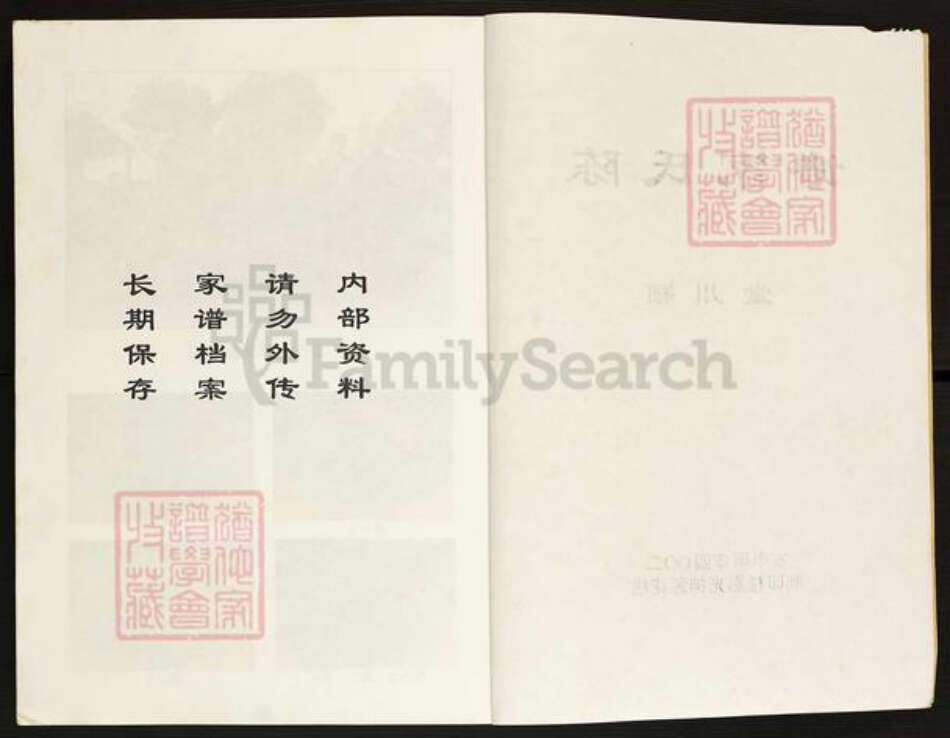 内部资料
请勿外传
家谱档案
长期保存
猶他家
譜學會
收藏
猶他家
譜學會
收藏
FamilySearch